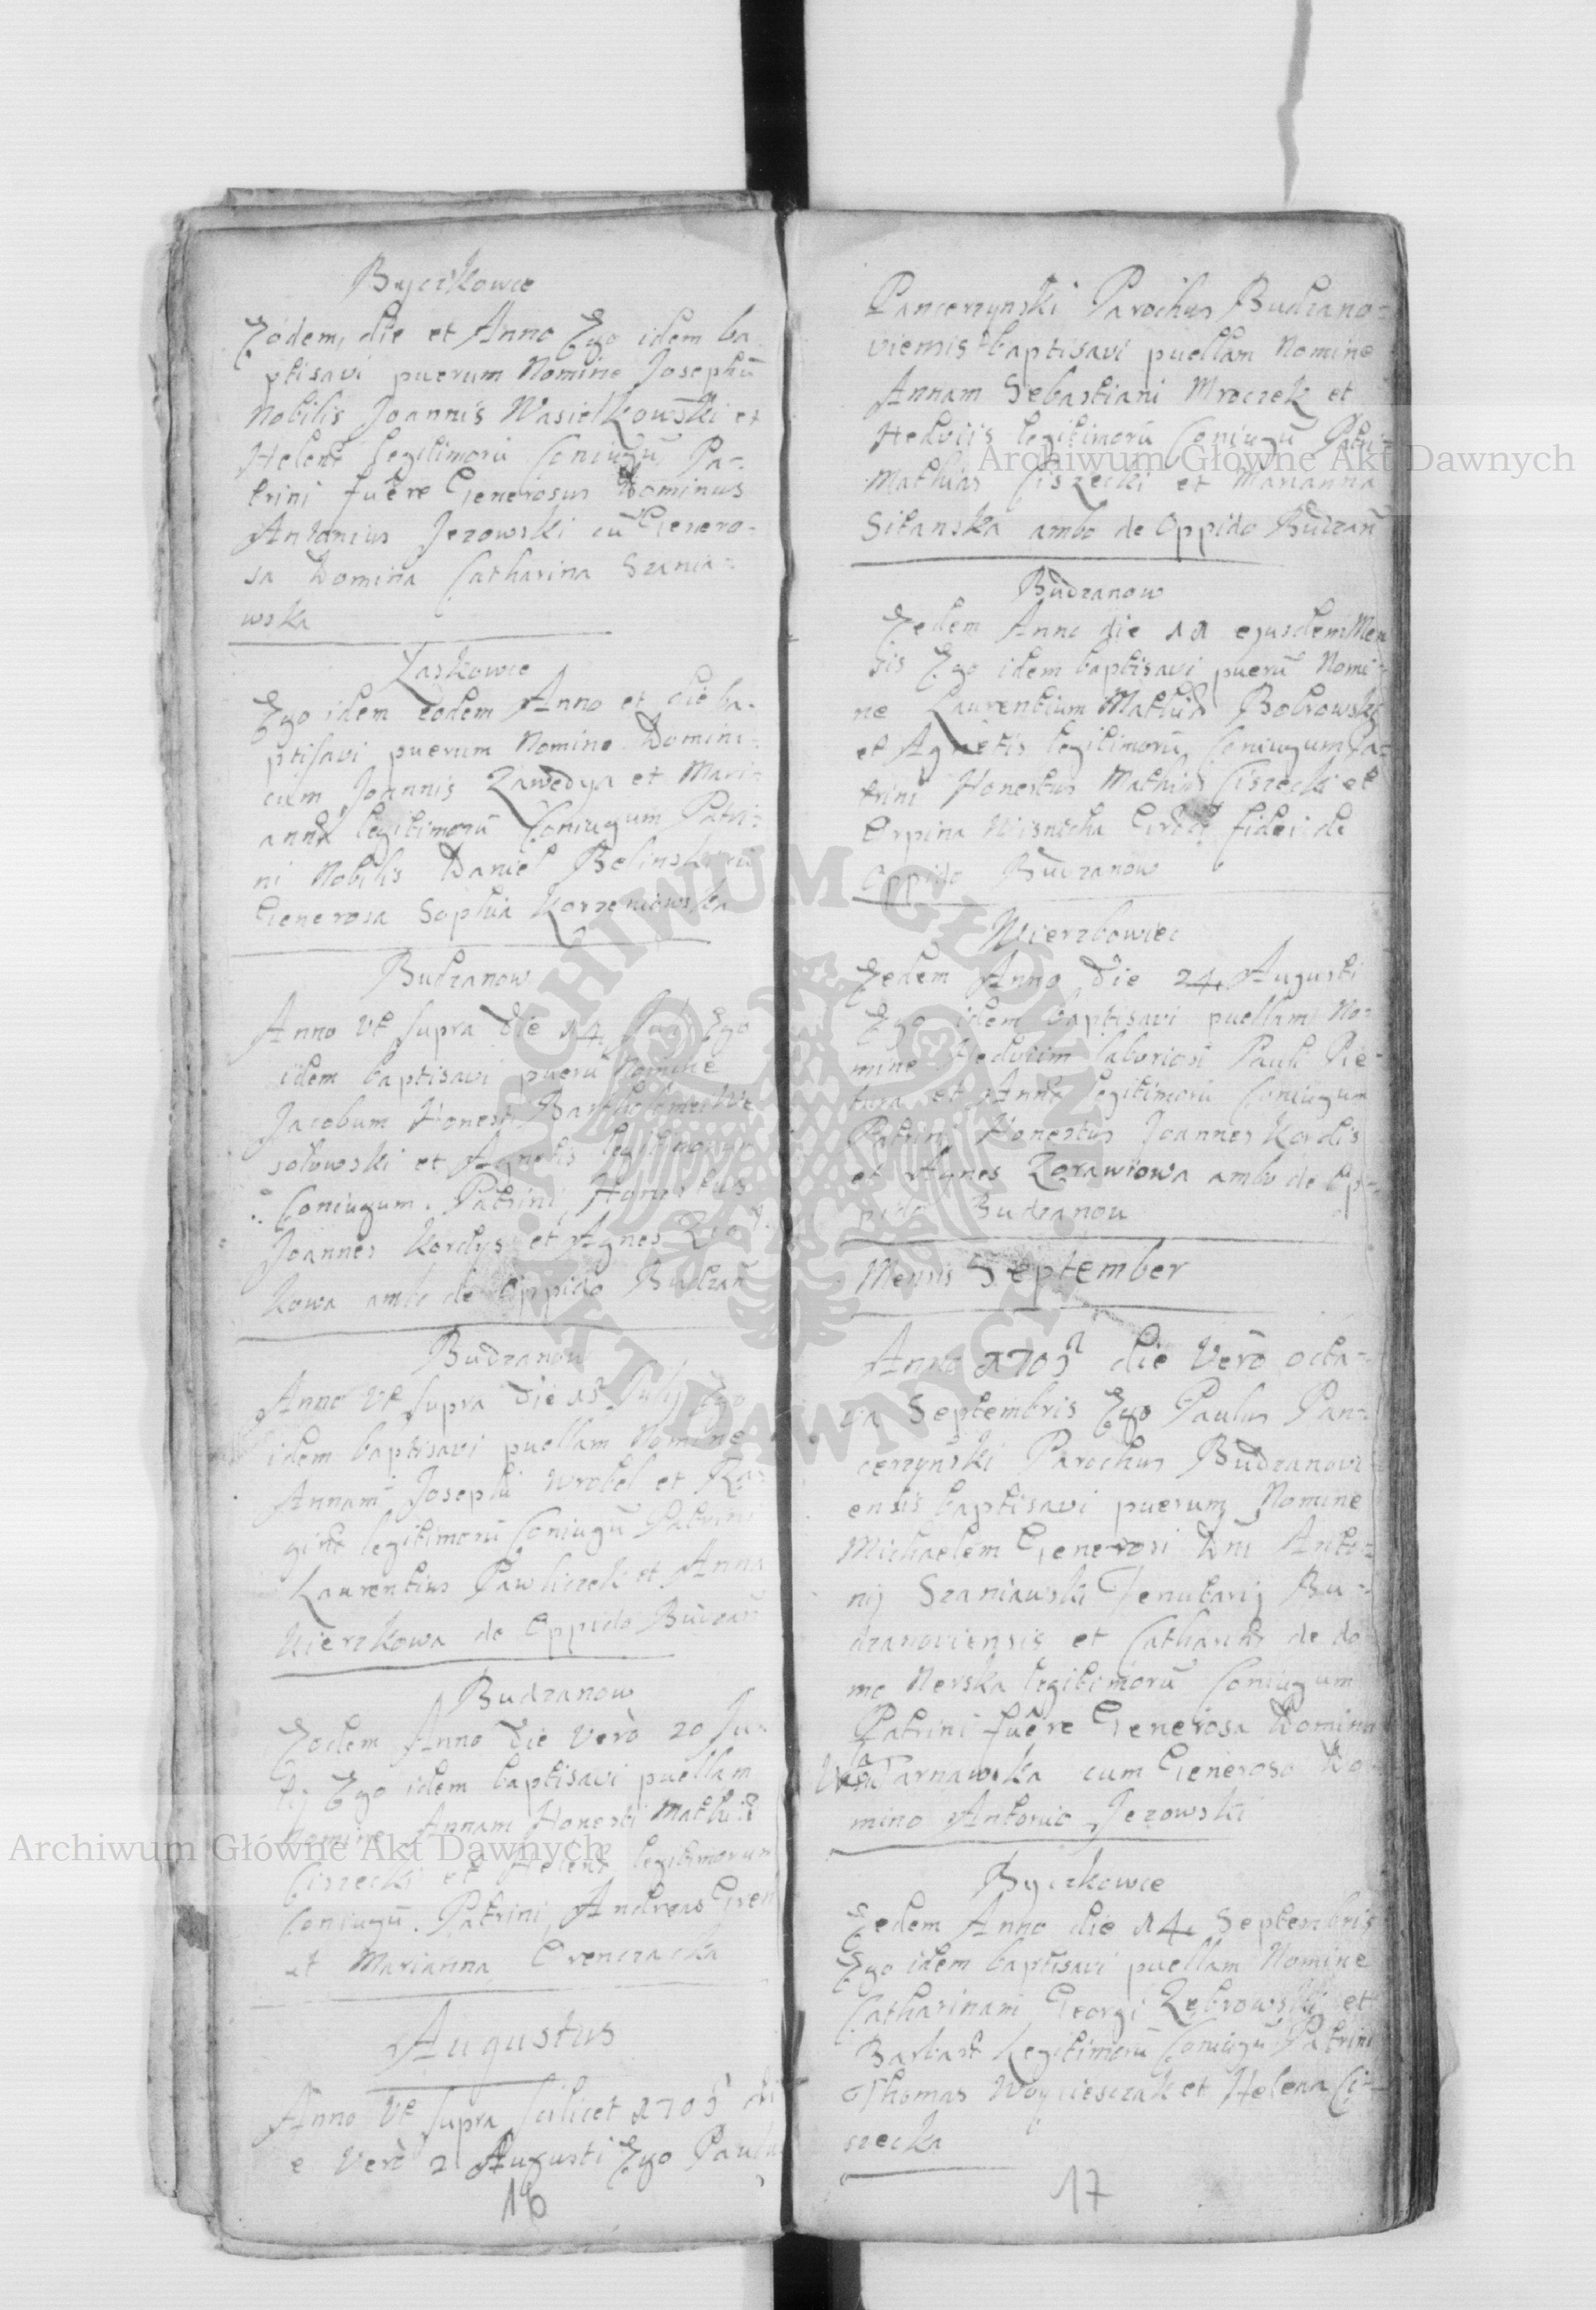 Byczkowce
Eodem die et Anno Ego idem ba
ptisavi puerum Nomine Josephū
Nobilis Joannis Wasilkowski et
Helenæ legitimorū Coniugū Pa-
trini fuêre Generosus Dominus
Antonius Jezowski cū Genero-
sa Domina Catharina Szania-
wska
Laskowce
Ego idem eodem Anno et die ba-
ptisavi puerum Nomine Domini-
cum Joannis Zawedya et Mari-
annæ legitimorū Coniugum Patri-
ni Nobilis Daniel Belinski
Generosa Sophia Korzeniowska
Budzanow
Anno Vt supra Die 14 Julij Ego
idem baptisavi puerū Nomine
Jacobum Honesti Bartholomei We
sołowski et Agnetis legitimorum
Coniugum. Patrini Honestus
Joannes Kordys et Agnes
kowa ambo de Oppido Budzan
Budzanow
Anno Vt supra Die 15 Julij Ego
idem baptisavi puellam Nomine
Annam Josephi Wrobel et Re-
ginæ legitimorū Coniugū Patrini
Laurentius Pawliczek et Anna
Kierzkowa de Oppido Budzan
Budzanow
Eodem Anno Die Verò 20 Ju-
lij Ego idem baptisavi puellam
Nomine Annam Honesti Mathiæ
Ciszecki et Helenæ legitimorum
Coniugū. Patrini Andreas Gren
et Marianna Grenczacka
Augustus
Anno Vt supra scilicet 1705 di
e Verò 2 Augusti Ego Paulu
16
Pancerzynski Parochus Budzano-
viensis baptisavi puellam Nomine
Annam Sebastiani Mroczek et
Hedvigis legitimorū Coniugū Patri-
Mathias Ciszecki et Marianna
Sitanska ambo de Oppido Budzan
Budzanow
Eodem Anno die 11 ejusdem Men
sis Ego idem baptisavi puerū Nomi-
ne Laurentium Mathiæ Bobrowski
et Agnetis legitimorū Coniugum Pa-
trini Honestus Mathias Ciszecki et
fidei de
Oppido Budzanow
Wierzbowiec
Eodem Anno Die 24 Augusti
Ego idem baptisavi puellam No-
mine Hedvigim laboriosi Pauli Pie-
tura et Annæ legitimorū Coniugum
Patrini Honestus Joannes Kordis
et Agnes Zorawiowa ambo de Op-
pido Budzanow
Mensis September
Anno 1705 die Verò octa-
va Septembris Ego Paulus Pan-
cerzynski Parochus Budzanovi-
ensis baptisavi puerum Nomine
Michaelem Generosi Dni Anto-
nij Szaniawski Tenutarij Bu-
dzanoviensis et Catharinæ de do
mo Nerska legitimorū Coniugum
Patrini fuêre Generosa Domina
Tarnawska cum Generoso Do-
mino Antonio Jezowski
Byczkowce
Eodem Anno die 14 Septembris
Ego idem baptisavi puellam Nomine
Catharinam Georgi Zębrowski et
Barbaræ Legitimorū Coniugū Patrini
Thomas Woycieszak et Helena Ci-
szecka
17
Archiwum Główne Akt Dawnych
Archiwum Główne Akt Dawnych
ARCHIWUM GŁÓWNE AKT DAWNYCH